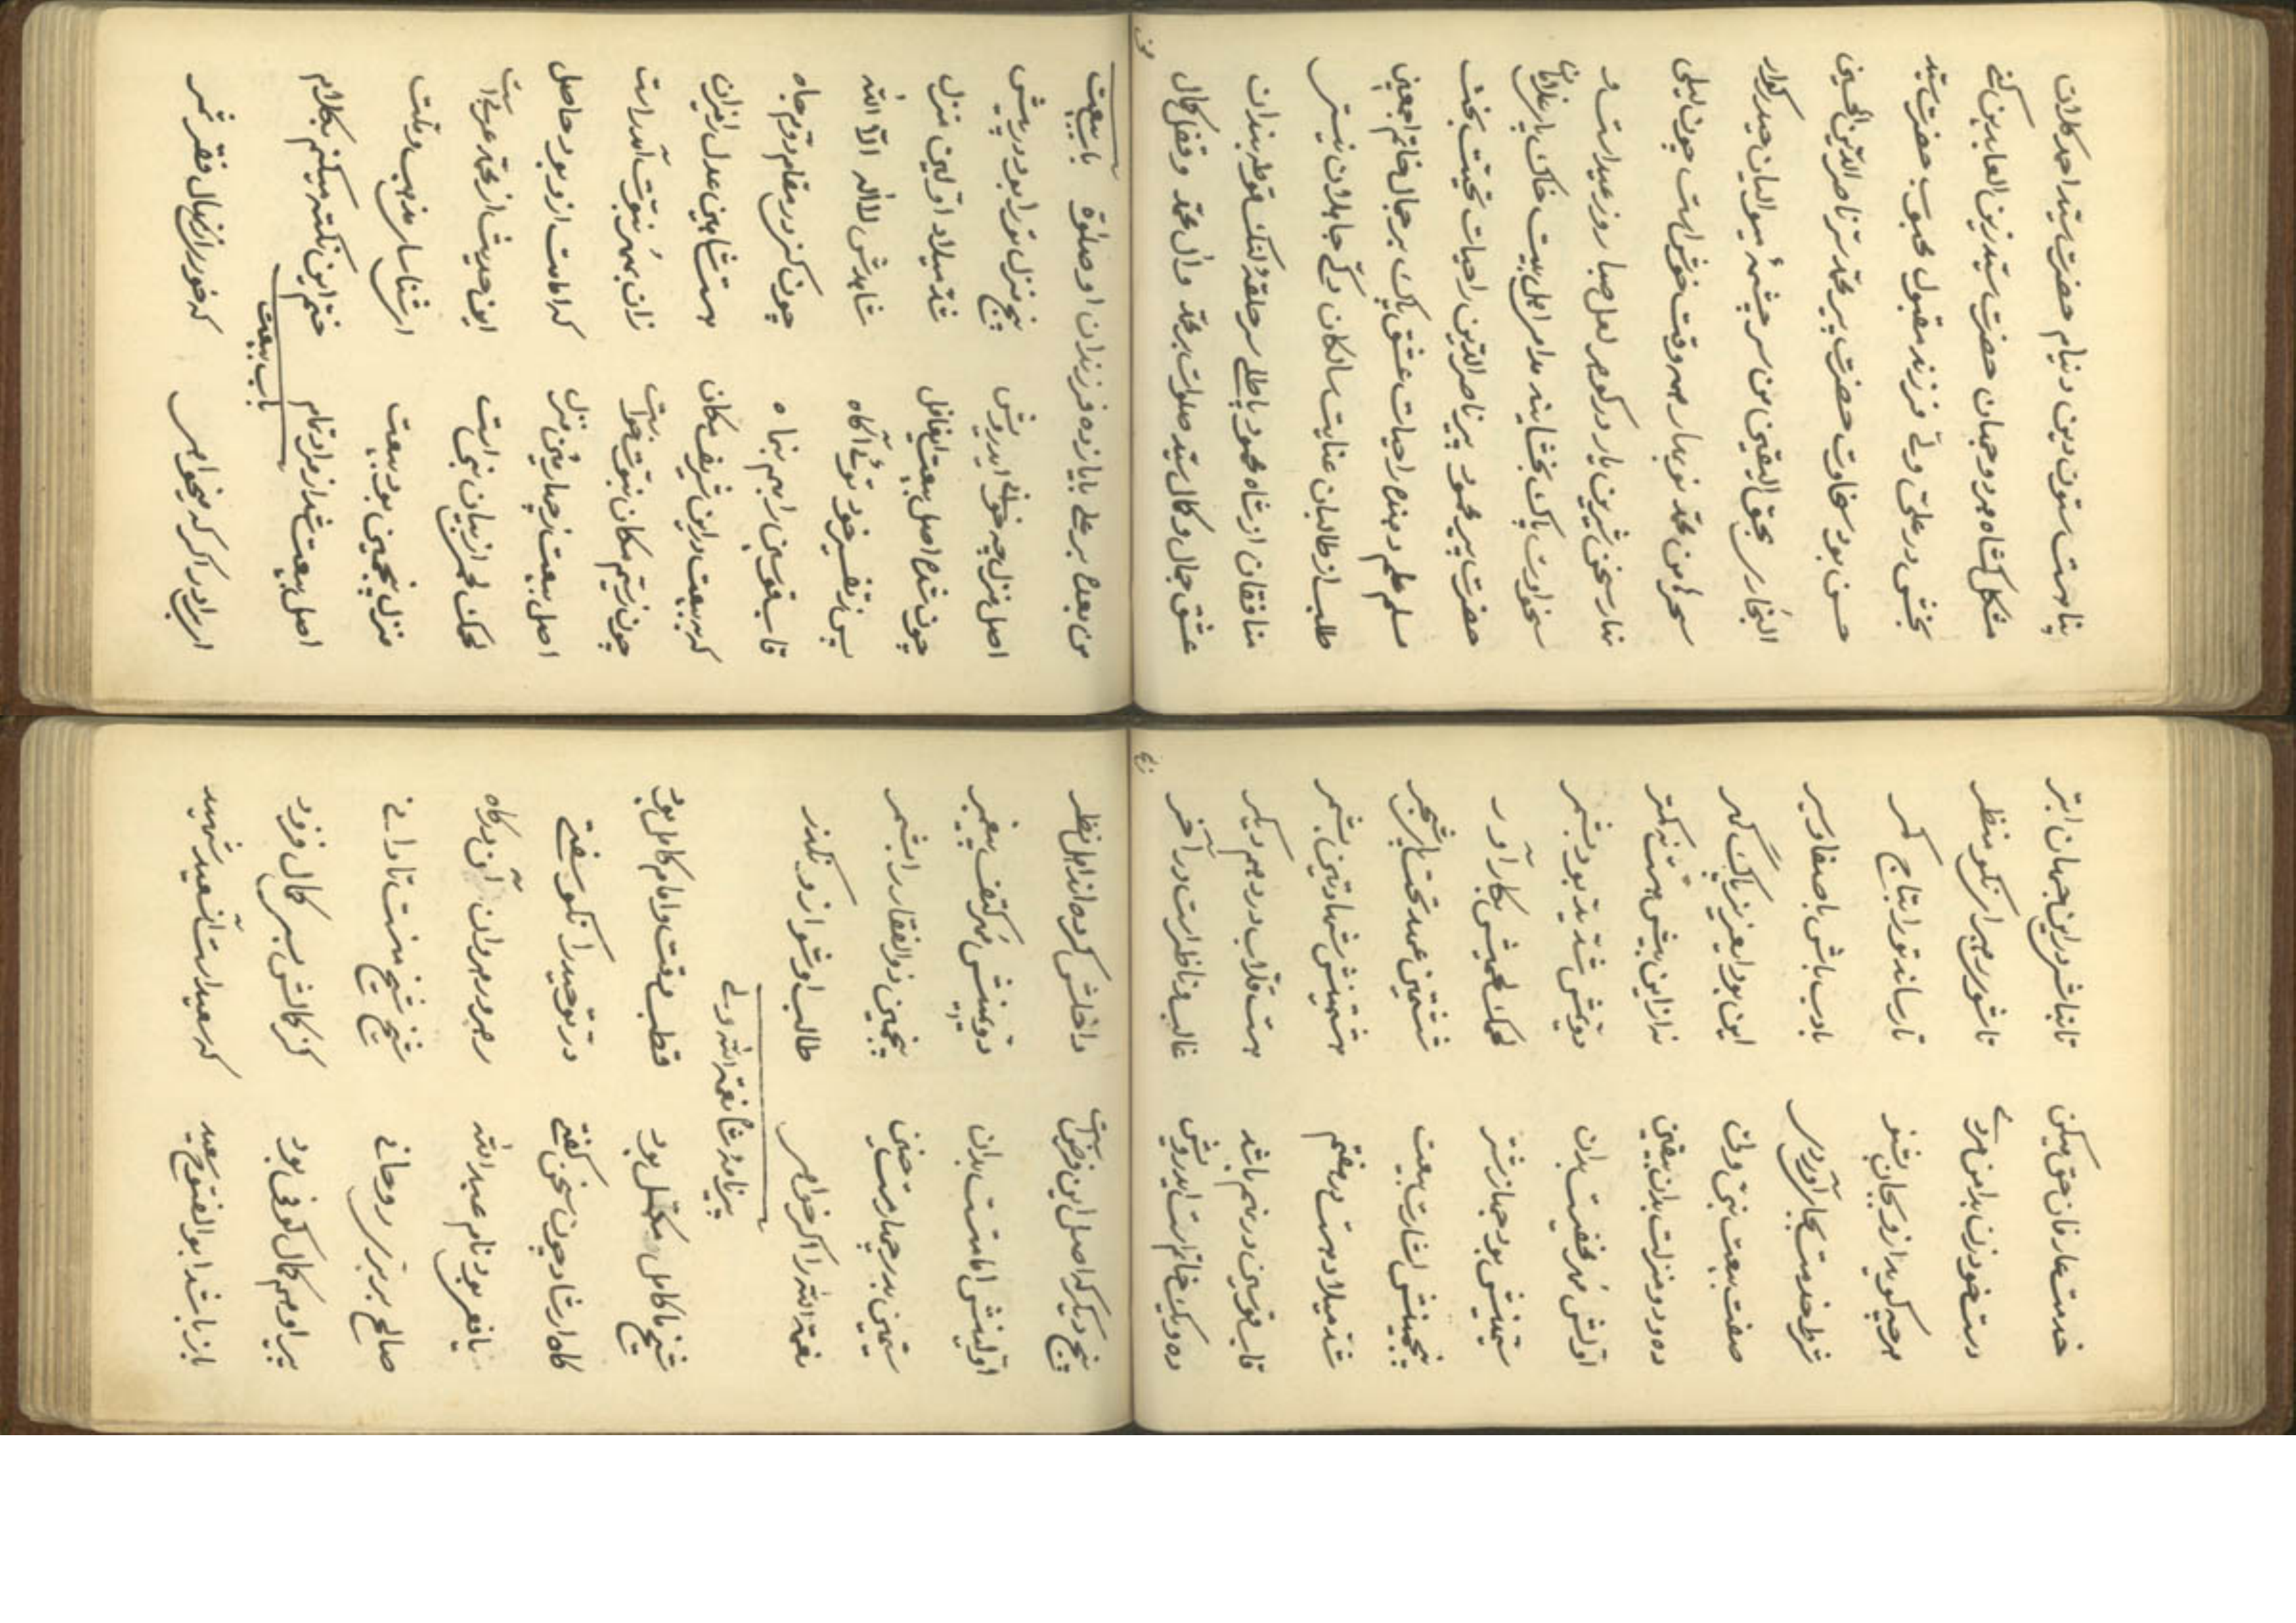 پناهست ستون دین دنیام حضرت سید احمد کلان
مشکل کشاه هر دو جهان حضرت سید زین العابدین کنی
بخش در علی ولی فرزند مقبول محبوب حضرت سید
حسن بود سخاوت حضرت پیر محمد سر ناصر الدین الحسین
البخاری بحق الیقین من سر چشمهٔ سیوالیان حیدر کرار
سحر امن محمد نوبهار همه وقت خوش است چون لیلی
نهار سخن شیرین یار در کوهر لعل صبا روز عید است و
سخاوت پاک بخشاینه مدام اهل بیت خاک پای غلامان
حضرت پیر محمود پیر ناصر الدین را حیات تخیت بخت
مسلم علم و بنده را حیات عشق پاک بر جمال خاتم اجمعین
طلب از طالبان عنایت سالکان وگر جاهلان نیستر
منافقان از شاه محمود یا علی سر حلقهٔ لنک غوطه بندان
عشق جمال و کمال سید صلوات بر محمد و آل محمد و قفل کمال
من بعده بر علی با یازده فرزندان او صلوة باب بیعت
اصل منزل چه خوانی ای درویش پنج منزل ترا بود در پیش
چون شده اصل بیعت ایغافل شد میلاد اولین منزل
پس ز تفسیر خود توئی آگاه شاهدش لا اله الا الله
قاب قوسین را بهم بنماه چون کنز در مقام دوم جاه
که بیعت در این شریف مکان هست شاهین عدل را میزان
چون زسیم مکان نبوت خواست زان بمهر نبوت آمد راست
اصل بیعت ز چهارمین منزل که امامت ازو بود حاصل
لحمک لحمی از بیان نبی است این حدیث از محمد عربی است
منزل پنجمین بود بیعت ارشناسا مذهب و ملت
اصل بیعت شد از مراد تمام ختم این نکته میکنم بکلام
باب بیعت
ای برادر اگر که میخواهی که خوری از نهال فقر ثمر
خدمت عارفان حق میکن تا نباشی در این جهان ابتر
دست خود زن بدامن مردی تا شوی بهر از نکو منظر
هرچه کوید ازو بجان بشنو تا رساند ترا بتاج کمر
شرط خدمت بجای آوریی با ادب باش با صفا و سیر
صفت بیعت نبی ولی این بود ایعزیز پاک کهر
ده و دو منزلت بدان بیقین نه از این بیش هست نه کمتر
اولش مهر مخفیست بدان دویمش شد ید بود بشمر
سیمینش بود جهاز شتر لحمک لحمیش بکار آور
پنجمینش اشارت بیعت ششمین عهد تحت پای شجر
شد میلاد هست در هفتم هشتمینش شهادتین بشمر
قاب قوسین در نهم باشد هست قلاب در دهم دیگر
ده و یک خاتم است ایدرویش غالب و ناظر است در آخر
پنج دیگر که اصل این فرض است داخلش کرده اند اهل نظر
اولینش امامتست بدان دویمینش مهر کتف پیغمبر
سیمین بدر چهارمست حنین پنجمین ذوالفقار را بشمر
نعمة الله را اگر خواهی طالب او شو از او نگذر
پیرنامهٔ شاه نعمة الله ولی
شیخ ما کامل مکمل بود قطب وقت و امام کامل بود
گاه ارشاد چون سخن کفتی در توحید را نکو سفتی
یافعی بود نام عبد الله رهبر رهروان آن درکاه
صالح بربری روحانی شیخ شیخ منست تا دانی
پیر او هم کمال کوفی بود کز کمالش بسی کمال فزود
باز باشد ابو الفتوح سعید که سعید است آن سعید شهید